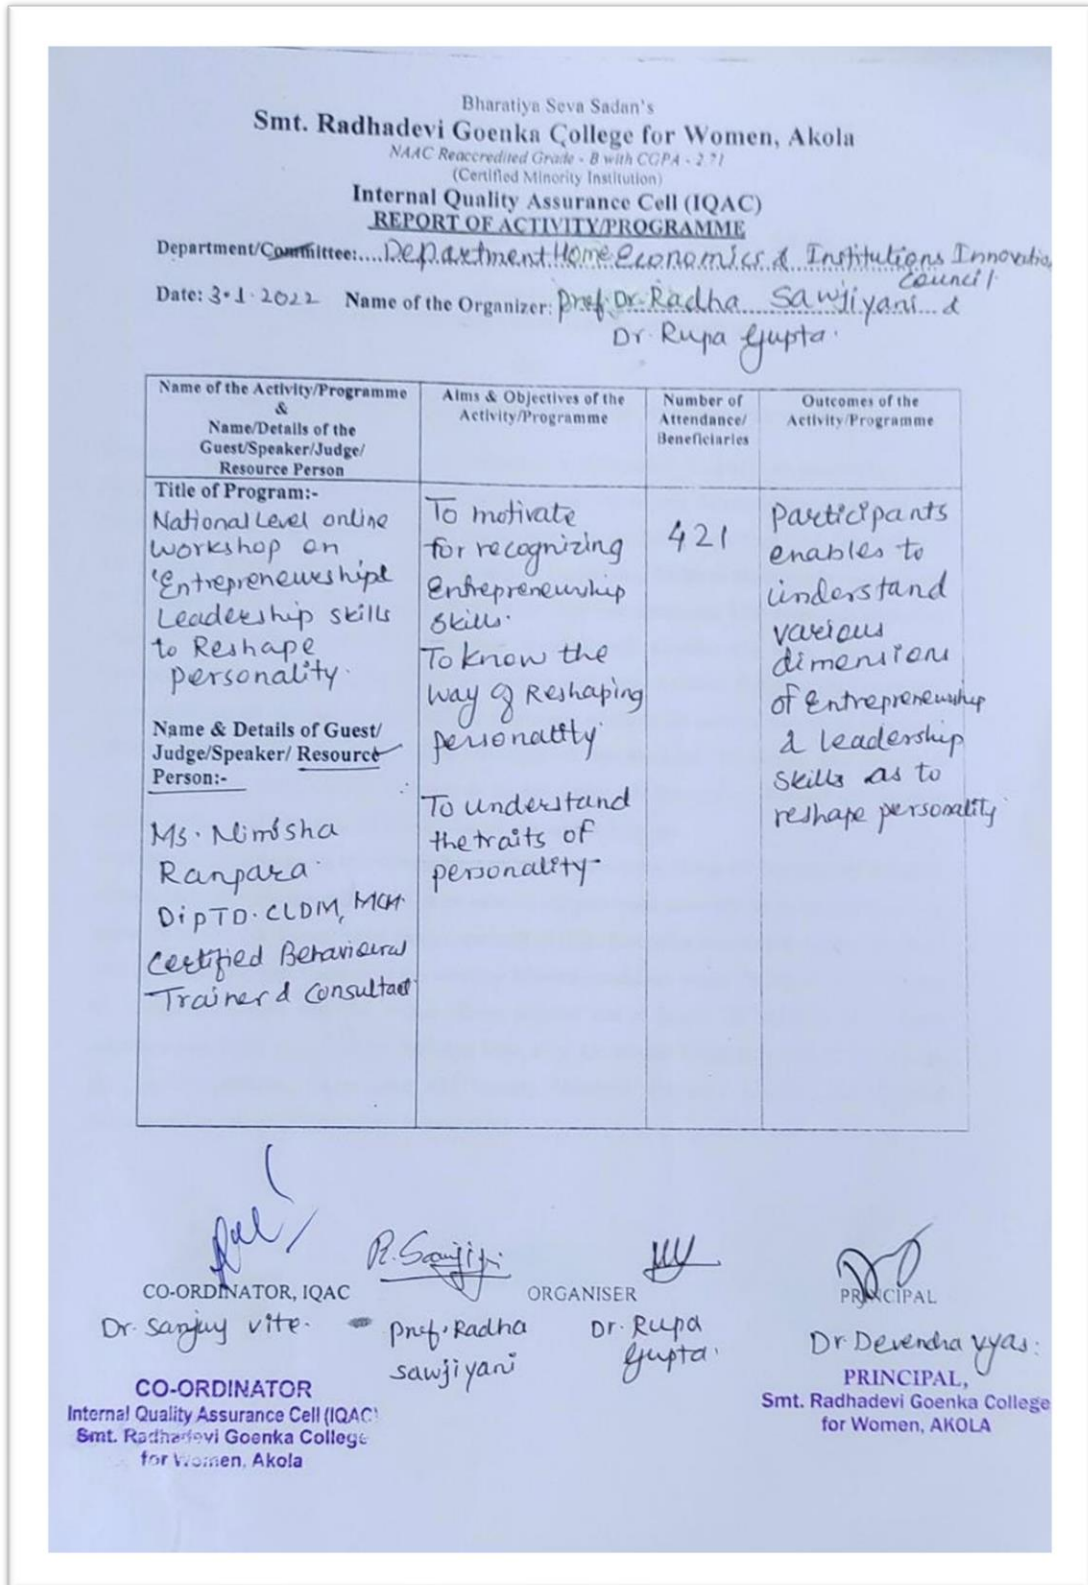 Bharatiya Seva Sadan's
Smt. Radhadevi Goenka College for Women, Akola
NAAC Reaccredited Grade - B with CGPA - 2.71
(Certified Minority Institution)
Internal Quality Assurance Cell (IQAC)
REPORT OF ACTIVITY/PROGRAMME
Department/Committee:....Department Home Economics & Institutions Innovation
Council.
Date: 3.1.2022 Name of the Organizer: Prof. Dr. Radha Sawjiyani &
Dr. Rupa Gupta.
Name of the Activity/Programme
&
Name/Details of the
Guest/Speaker/Judge/
Resource Person
Aims & Objectives of the
Activity/Programme
Number of
Attendance/
Beneficiaries
Outcomes of the
Activity/Programme
Title of Program:-
National Level online
workshop on
'Entrepreneurship &
Leadership skills
to Reshape
personality.
Name & Details of Guest/
Judge/Speaker/ Resource
Person:-
Ms. Nimisha
Ranpara.
DipTD. CLDM, MCH.
Certified Behavioural
Trainer & Consultant
To motivate
for recognizing
Entrepreneurship
skills.
To know the
way of Reshaping
personality
To understand
the traits of
personality-
421
Participants
enables to
understand
various
dimensions
of Entrepreneurship
& leadership
skills as to
reshape personality.
R. Sawjiyani
CO-ORDINATOR, IQAC
ORGANISER
PRINCIPAL
Dr. Sanjay Vite.
Prof. Radha
Sawjiyani
Dr. Rupa
Gupta.
Dr. Devendra Vyas.
CO-ORDINATOR
Internal Quality Assurance Cell (IQAC)
Smt. Radhadevi Goenka College
for Women, Akola
PRINCIPAL,
Smt. Radhadevi Goenka College
for Women, AKOLA